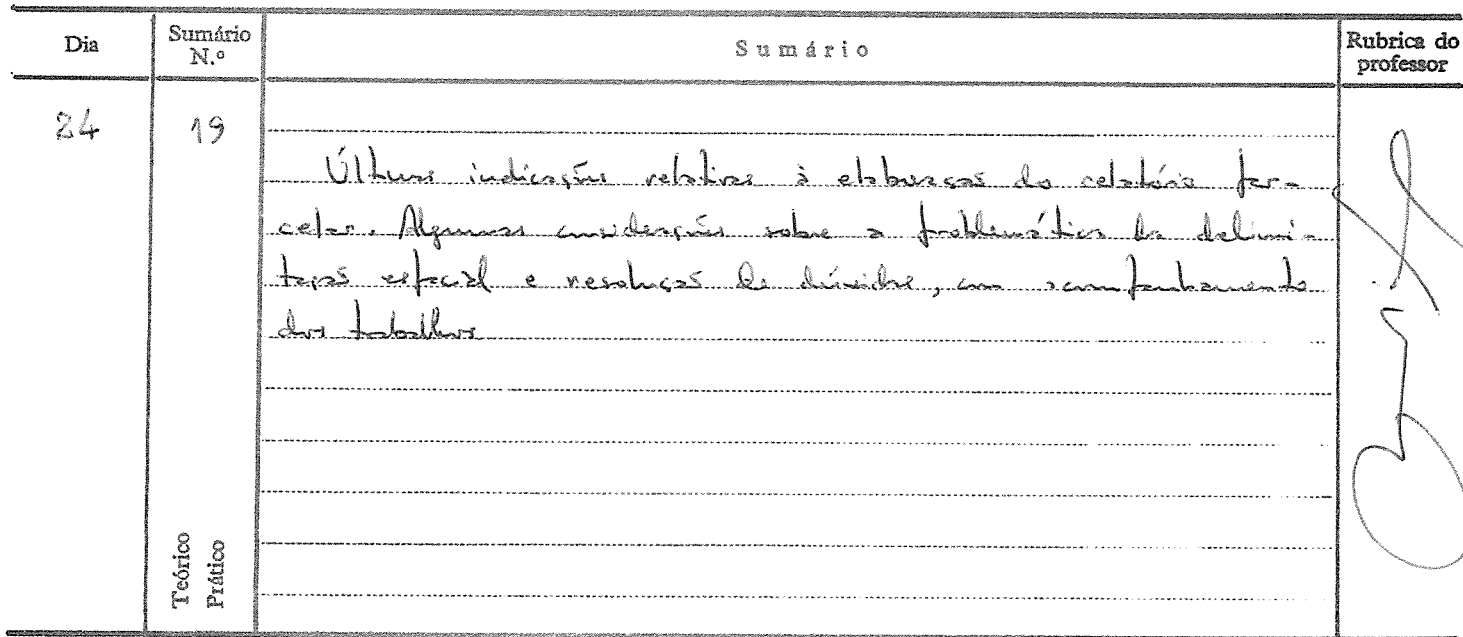 Dia
Sumário N.º
Sumário
Rubrica do professor
24
19
Últimas indicações relativas à elaboração do relatório par-
celar. Algumas considerações sobre a problemática da delimi-
tação espacial e resolução de dúvidas, com acompanhamento
dos trabalhos
Teórico
Prático